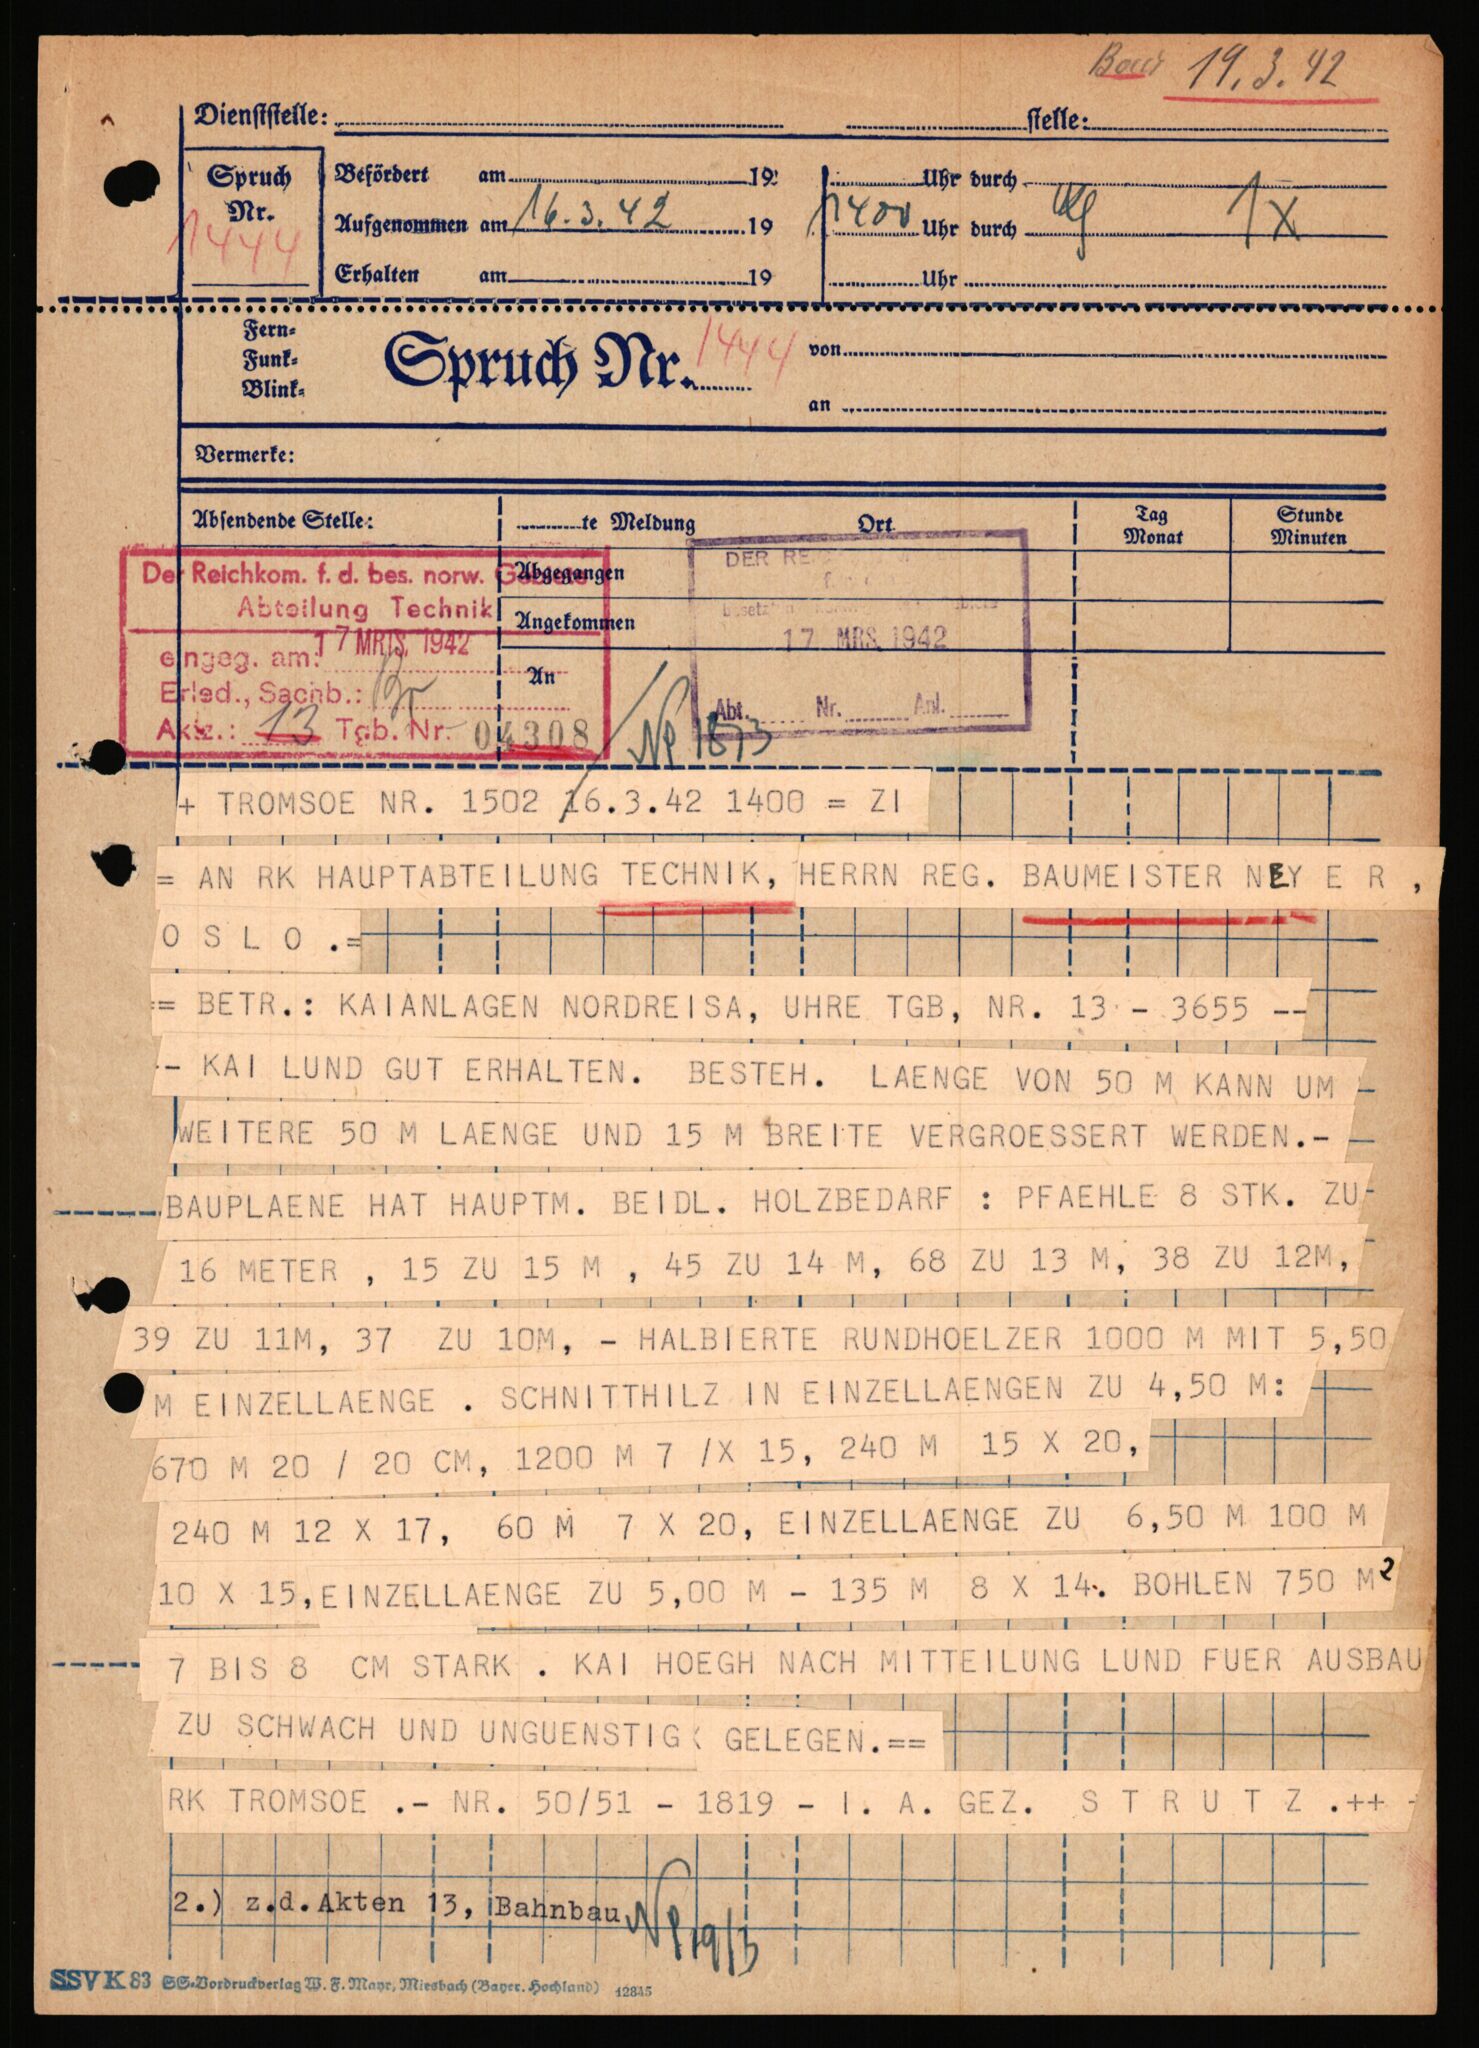 19.3.42
Dienststelle: stelle:
Spruch Nr. 1444
Befördert am 19 Uhr durch
Aufgenommen am 16.3.42 19 1400 Uhr durch 1 X
Erhalten am 19 Uhr
Fern-
Funk-
Blink-
Spruch Nr. 1444
von
an
Vermerke:
Absendende Stelle: te Meldung Ort Tag Monat Stunde Minuten
Abgegangen
Angekommen
An
Der Reichkom. f. d. bes. norw. Gebiete
Abteilung Technik
eingeg. am: 17 MRIS. 1942
Erled., Sachb.:
Aktz.: 13 Tgb. Nr. 04308
DER RE
besetzten
17 MRS. 1942
Abt. Nr. Anl.
18/3
+ TROMSOE NR. 1502 16.3.42 1400 = ZI
= AN RK HAUPTABTEILUNG TECHNIK, HERRN REG. BAUMEISTER NEY E R ,
O S L O .=
= BETR.: KAIANLAGEN NORDREISA, UHRE TGB, NR. 13 - 3655 --
-- KAI LUND GUT ERHALTEN. BESTEH. LAENGE VON 50 M KANN UM
WEITERE 50 M LAENGE UND 15 M BREITE VERGROESSERT WERDEN.-
BAUPLAENE HAT HAUPTM. BEIDL. HOLZBEDARF : PFAEHLE 8 STK. ZU
16 METER , 15 ZU 15 M , 45 ZU 14 M, 68 ZU 13 M, 38 ZU 12M,
39 ZU 11M, 37 ZU 10M, - HALBIERTE RUNDHOELZER 1000 M MIT 5,50
M EINZELLAENGE . SCHNITTHILZ IN EINZELLAENGEN ZU 4,50 M:
670 M 20 / 20 CM, 1200 M 7 /X 15, 240 M 15 X 20,
240 M 12 X 17, 60 M 7 X 20, EINZELLAENGE ZU 6,50 M 100 M
10 X 15, EINZELLAENGE ZU 5,00 M - 135 M 8 X 14. BOHLEN 750 M²
7 BIS 8 CM STARK . KAI HOEGH NACH MITTEILUNG LUND FUER AUSBAU
ZU SCHWACH UND UNGUENSTIG GELEGEN.==
RK TROMSOE .- NR. 50/51 - 1819 - I. A. GEZ. S T R U T Z .++
2.) z.d.Akten 13, Bahnbau
19/3
SSV K 83 SS-Vordruckverlag W. F. Mayr, Miesbach (Bayer. Hochland) 12845